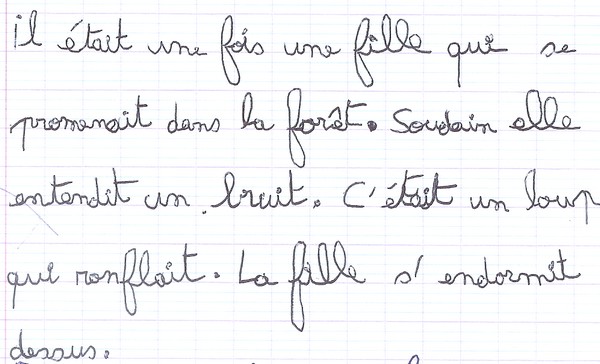 il était une fois une fille qui se
promenait dans la forêt. Soudain elle
entendit un bruit. C'était un loup
qui ronflait. La fille s'endormit
dessus.